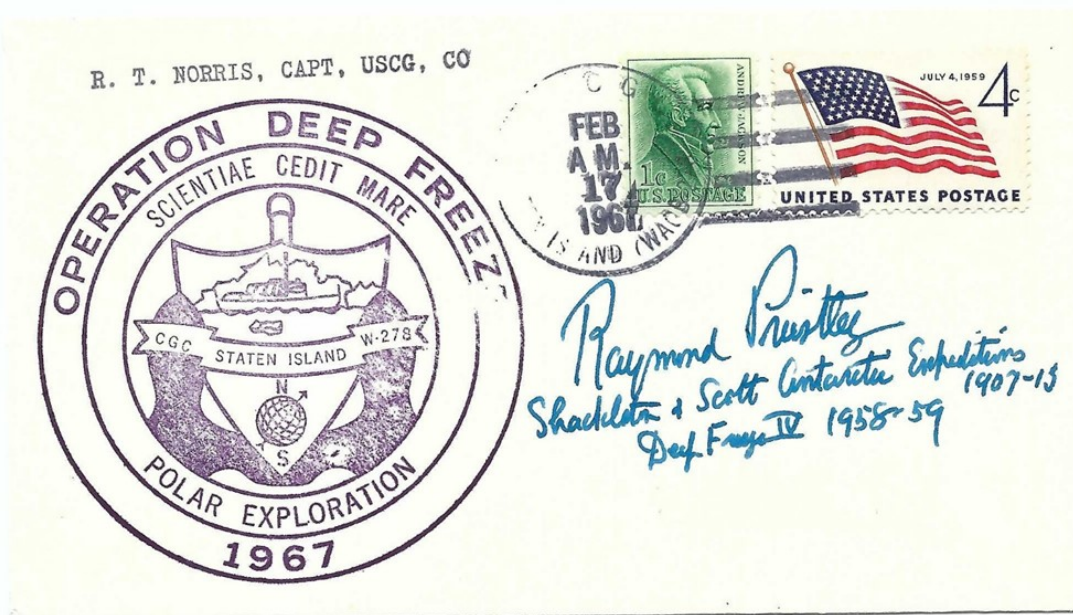 R. T. NORRIS, CAPT, USCG, CO
OPERATION DEEP FREEZE
SCIENTIAE CEDIT MARE
CGC STATEN ISLAND W-278
N
S
POLAR EXPLORATION
1967
CG
FEB
A M.
17
1967
IS AND (WAGB
ANDREW JACKSON
1c
U.S. POSTAGE
JULY 4, 1959
4c
UNITED STATES POSTAGE
Raymond Priestley
Shackleton & Scott Antarctic Expeditions
1907-13
Deep Freeze IV 1958-59